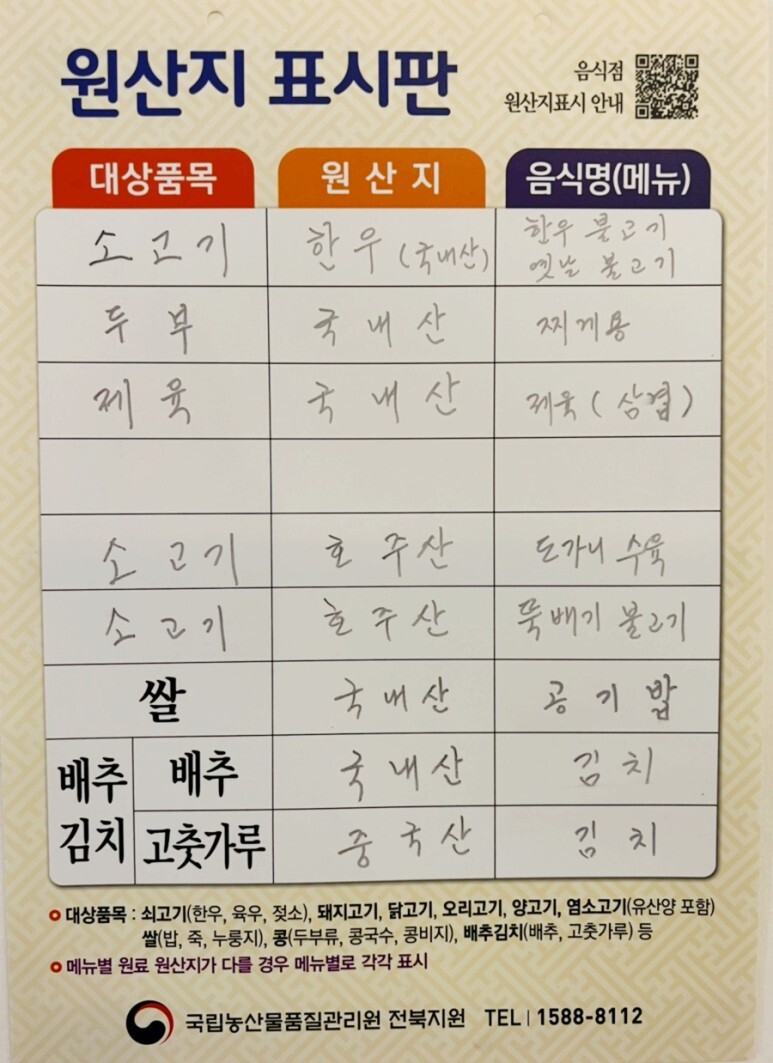 원산지 표시판
음식점
원산지표시 안내
대상품목 원산지 음식명(메뉴)
소고기 한우(국내산) 한우 불고기
옛날 불고기
두부 국내산 찌게용
제육 국내산 제육(삼겹)
소고기 호주산 도가니 수육
소고기 호주산 뚝배기 불고기
쌀 국내산 공기밥
배추김치 배추 국내산 김치
고춧가루 중국산 김치
대상품목 : 쇠고기(한우, 육우, 젖소), 돼지고기, 닭고기, 오리고기, 양고기, 염소고기(유산양 포함)
쌀(밥, 죽, 누룽지), 콩(두부류, 콩국수, 콩비지), 배추김치(배추, 고춧가루) 등
메뉴별 원료 원산지가 다를 경우 메뉴별로 각각 표시
국립농산물품질관리원 전북지원 TEL | 1588-8112